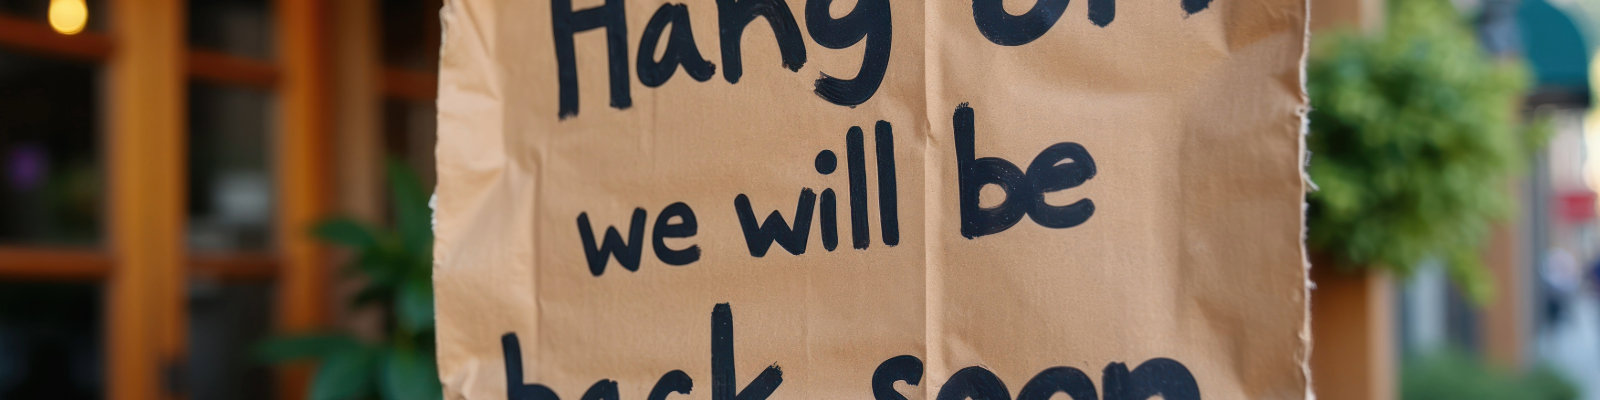 Hang on
we will be
back soon